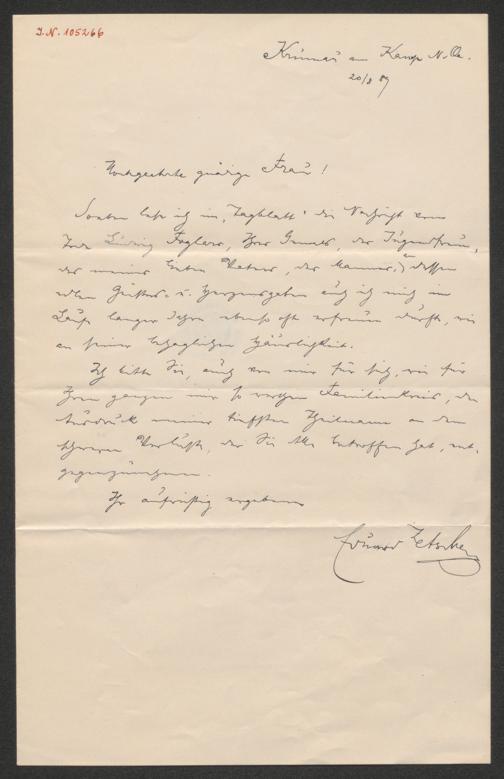 I.N. 105266
Krumau am Kamp N.Öe.
20/8 89
Hochgeehrte gnädige Frau!
Soeben lese ich im "Tagblatt" die Nachricht vom
Tode Ludwig Foglars, Ihres Gemals, des Jugendfreundes
meines guten Vaters, des Mannes, an dessen
edlen Geistes- u. Herzensgaben auch ich mich im
Laufe langer Jahre ebenso oft erfreuen durfte, wie
an seiner behaglichen Häuslichkeit.
Ich bitte Sie, auch von mir für sich, wie für
Ihren ganzen mir so werthen Familienkreis, den
Ausdruck meiner tiefsten Theilname an dem
schweren Verluste, der Sie Alle betroffen hat, ent-
gegenzunehmen.
Ihr aufrichtig ergebener
Eduard Zetsche